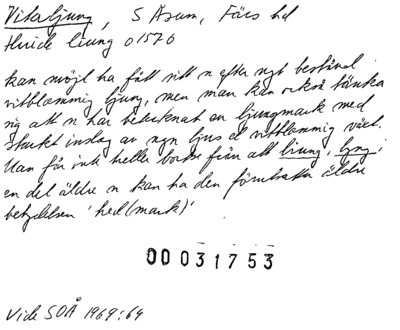 Vitaljung, S Åsum, Färs hd
Huide liung o 1570
kan möjl ha fått sitt n efter ngt bestånd
vitblommig ljung, men man kan också tänka
sig att n har betecknat en ljungmark med
starkt inslag av ngn ljus el vitblommig växt.
Man får inte heller bortse från att liung, lyng i
en del äldre n kan ha den förmodade äldre
betydelsen 'hed(mark)'
00031753
Vide SOÅ 1969:64